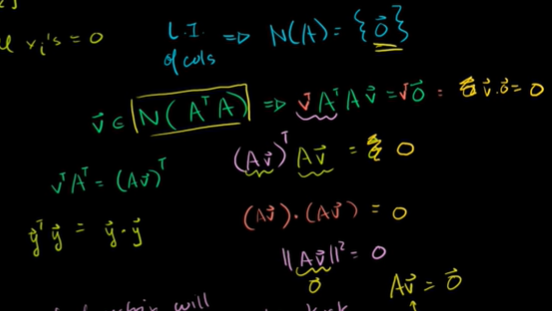 ll xᵢ's = 0
L.I. of cols ⇒ N(A) = {0⃗}
v⃗ ∈ N(AᵀA) ⇒ v⃗ᵀAᵀAv⃗ = vᵀ0⃗ = v⃗·0⃗ = 0
(Av⃗)ᵀ Av⃗ = 0
vᵀAᵀ = (Av⃗)ᵀ
(Av⃗)·(Av⃗) = 0
y⃗ᵀy⃗ = y⃗·y⃗
||Av⃗||² = 0
0⃗
Av⃗ = 0⃗
will